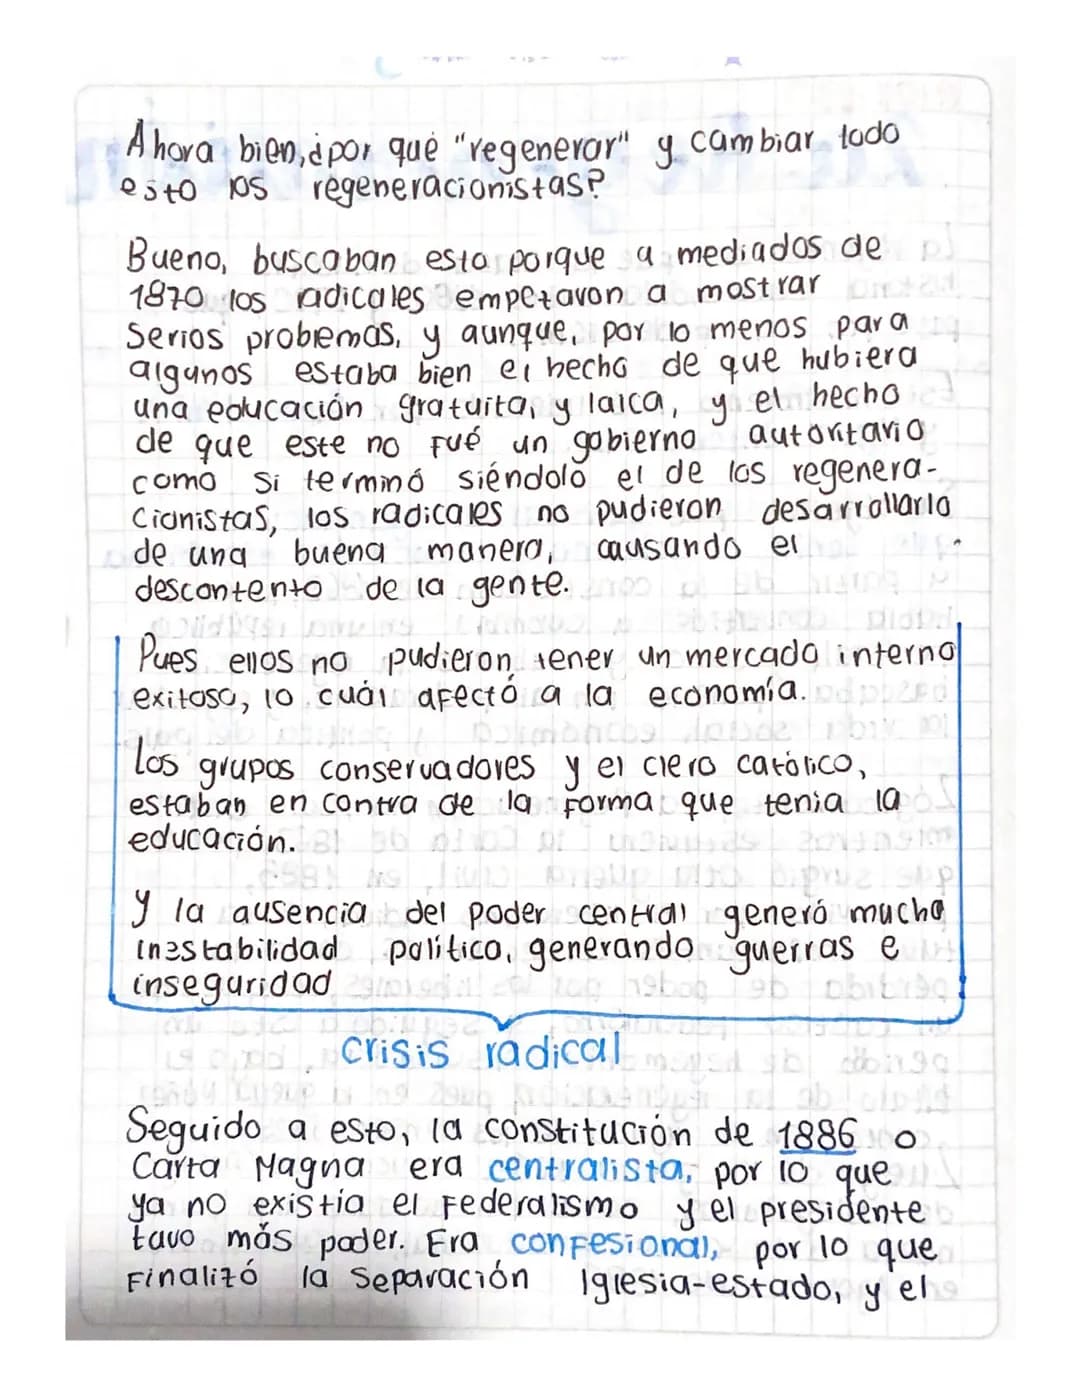 Ahora bien, ¿por qué "regenerar" y cambiar todo
esto los regeneracionistas?
Bueno, buscaban esto porque a mediados de
1870 los radicales empezaron a mostrar
serios problemas, y aunque, por lo menos para
algunos estaba bien el hecho de que hubiera
una educación gratuita, y laica, y el hecho
de que este no fué un gobierno autoritario
como si terminó siéndolo el de los regenera-
cionistas, los radicales no pudieron desarrollarlo
de una buena manera, causando el
descontento de la gente.
Pues ellos no pudieron tener un mercado interno
exitoso, lo cuál afectó a la economía.
Los grupos conservadores y el clero católico,
estaban en contra de la forma que tenia la
educación.
Y la ausencia del poder central generó mucha
inestabilidad política, generando guerras e
inseguridad
crisis radical
Seguido a esto, la constitución de 1886 o
Carta Magna era centralista, por lo que
ya no existía el Federalismo y el presidente
tuvo más poder. Era confesional, por lo que
Finalizó la separación Iglesia-estado, y el